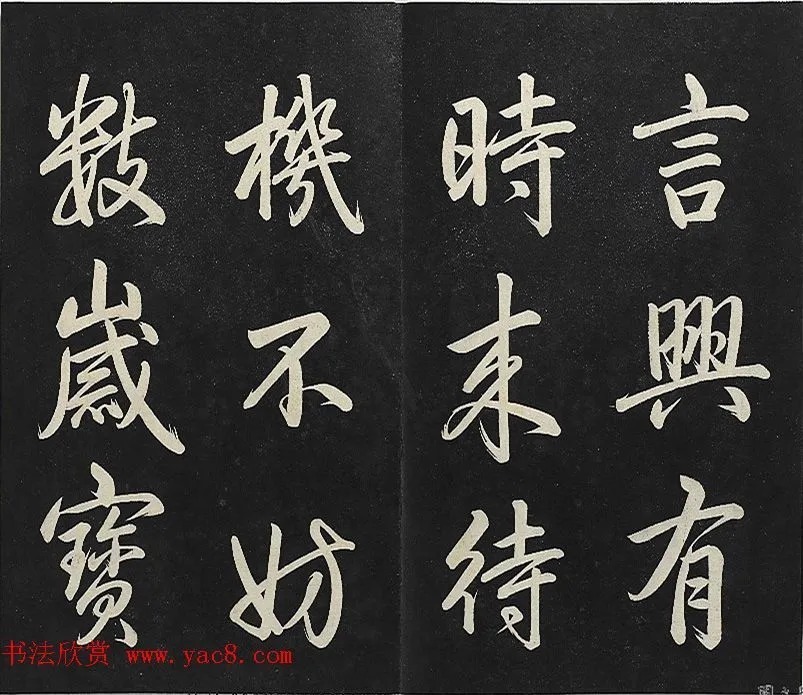 言興有
時来待
機不妨
数歲寶
书法欣赏 www.yac8.com